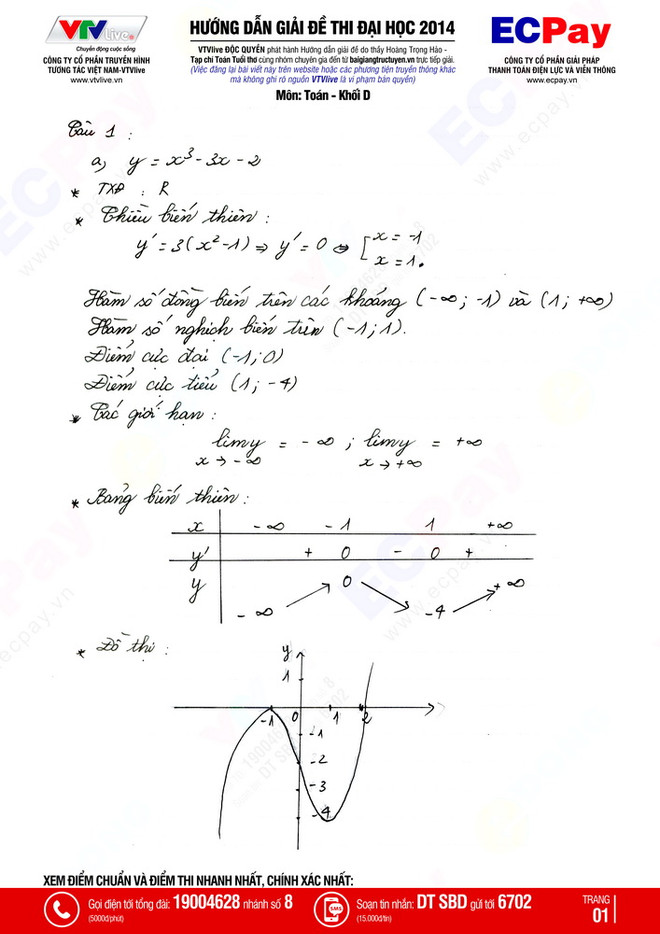 VTVLive
Chuyển động cuộc sống
CÔNG TY CỔ PHẦN TRUYỀN HÌNH
TƯƠNG TÁC VIỆT NAM-VTVlive
www.vtvlive.vn
HƯỚNG DẪN GIẢI ĐỀ THI ĐẠI HỌC 2014
VTVlive ĐỘC QUYỀN phát hành Hướng dẫn giải đề do thầy Hoàng Trọng Hảo -
Tạp chí Toán Tuổi thơ cùng nhóm chuyên gia đến từ baigiangtructuyen.vn trực tiếp giải.
(Việc đăng lại bài viết này trên website hoặc các phương tiện truyền thông khác
mà không ghi rõ nguồn VTVlive là vi phạm bản quyền)
Môn: Toán - Khối D
ECPay
CÔNG TY CỔ PHẦN GIẢI PHÁP
THANH TOÁN ĐIỆN LỰC VÀ VIỄN THÔNG
www.ecpay.vn
Câu 1 :
a, y = x³ - 3x - 2
* TXĐ : R
* Chiều biến thiên :
y' = 3(x² - 1) ⇒ y' = 0 ⇔ [ x = -1
x = 1.
Hàm số đồng biến trên các khoảng (-∞; -1) và (1; +∞)
Hàm số nghịch biến trên (-1; 1).
Điểm cực đại (-1; 0)
Điểm cực tiểu (1; -4)
* Các giới hạn :
lim y = -∞ ; lim y = +∞
x → -∞ x → +∞
* Bảng biến thiên :
x -∞ -1 1 +∞
y' + 0 - 0 +
y -∞ 0 -4 +∞
* Đồ thị :
y
1
-1 0 1 2
-1
-2
-3
-4
XEM ĐIỂM CHUẨN VÀ ĐIỂM THI NHANH NHẤT, CHÍNH XÁC NHẤT:
Gọi điện tới tổng đài: 19004628 nhánh số 8
(5000đ/phút)
SMS
Soạn tin nhắn: DT SBD gửi tới 6702
(15.000đ/tin)
TRANG
01